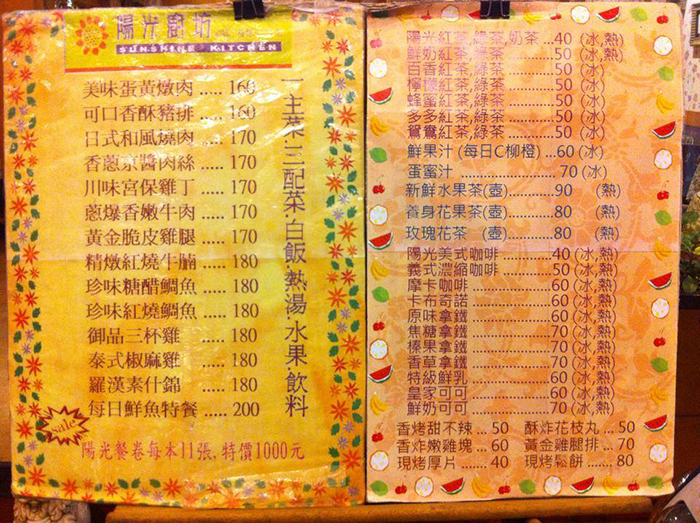 陽光廚坊
SUNSHINE KITCHEN
美味蛋黃燉肉 ..... 160
可口香酥豬排 ..... 160
日式和風燒肉 ..... 170
香蔥京醬肉絲 ..... 170
川味宮保雞丁 ..... 170
蔥爆香嫩牛肉 ..... 170
黃金脆皮雞腿 ..... 170
精燉紅燒牛腩 ..... 180
珍味糖醋鯛魚 ..... 180
珍味紅燒鯛魚 ..... 180
御品三杯雞 ..... 180
泰式椒麻雞 ..... 180
羅漢素什錦 ..... 180
每日鮮魚特餐 ..... 200
一主菜.三配菜.白飯.熱湯.水果.飲料
sale
陽光餐卷每本11張,特價1000元
陽光紅茶,綠茶,奶茶 ...40 (冰,熱)
鮮奶紅茶,綠茶 .......... 50 (冰,熱)
百香紅茶,綠茶 .......... 50 (冰)
檸檬紅茶,綠茶 .......... 50 (冰)
蜂蜜紅茶,綠茶 .......... 50 (冰)
多多紅茶,綠茶 .......... 50 (冰)
鴛鴦紅茶,綠茶 .......... 50 (冰)
鮮果汁 (每日C柳橙) ...60 (冰)
蛋蜜汁 ......................70 (冰)
新鮮水果茶(壺) ..........90 (熱)
養身花果茶(壺) ..........80 (熱)
玫瑰花茶 (壺) ..........80 (熱)
陽光美式咖啡 ............40 (冰,熱)
義式濃縮咖啡 ............50 (熱)
摩卡咖啡 ..................60 (冰,熱)
卡布奇諾 ..................60 (冰,熱)
原味拿鐵 ..................60 (冰,熱)
焦糖拿鐵 ..................70 (冰,熱)
榛果拿鐵 ..................70 (冰,熱)
香草拿鐵 ..................70 (冰,熱)
特級鮮乳 ..................60 (冰,熱)
皇家可可 ..................60 (冰,熱)
鮮奶可可 ..................70 (冰,熱)
香烤甜不辣 .. 50 酥炸花枝丸 .. 50
香炸嫩雞塊 ... 60 黃金雞腿排 ... 70
現烤厚片 ...... 40 現烤鬆餅 ...... 80